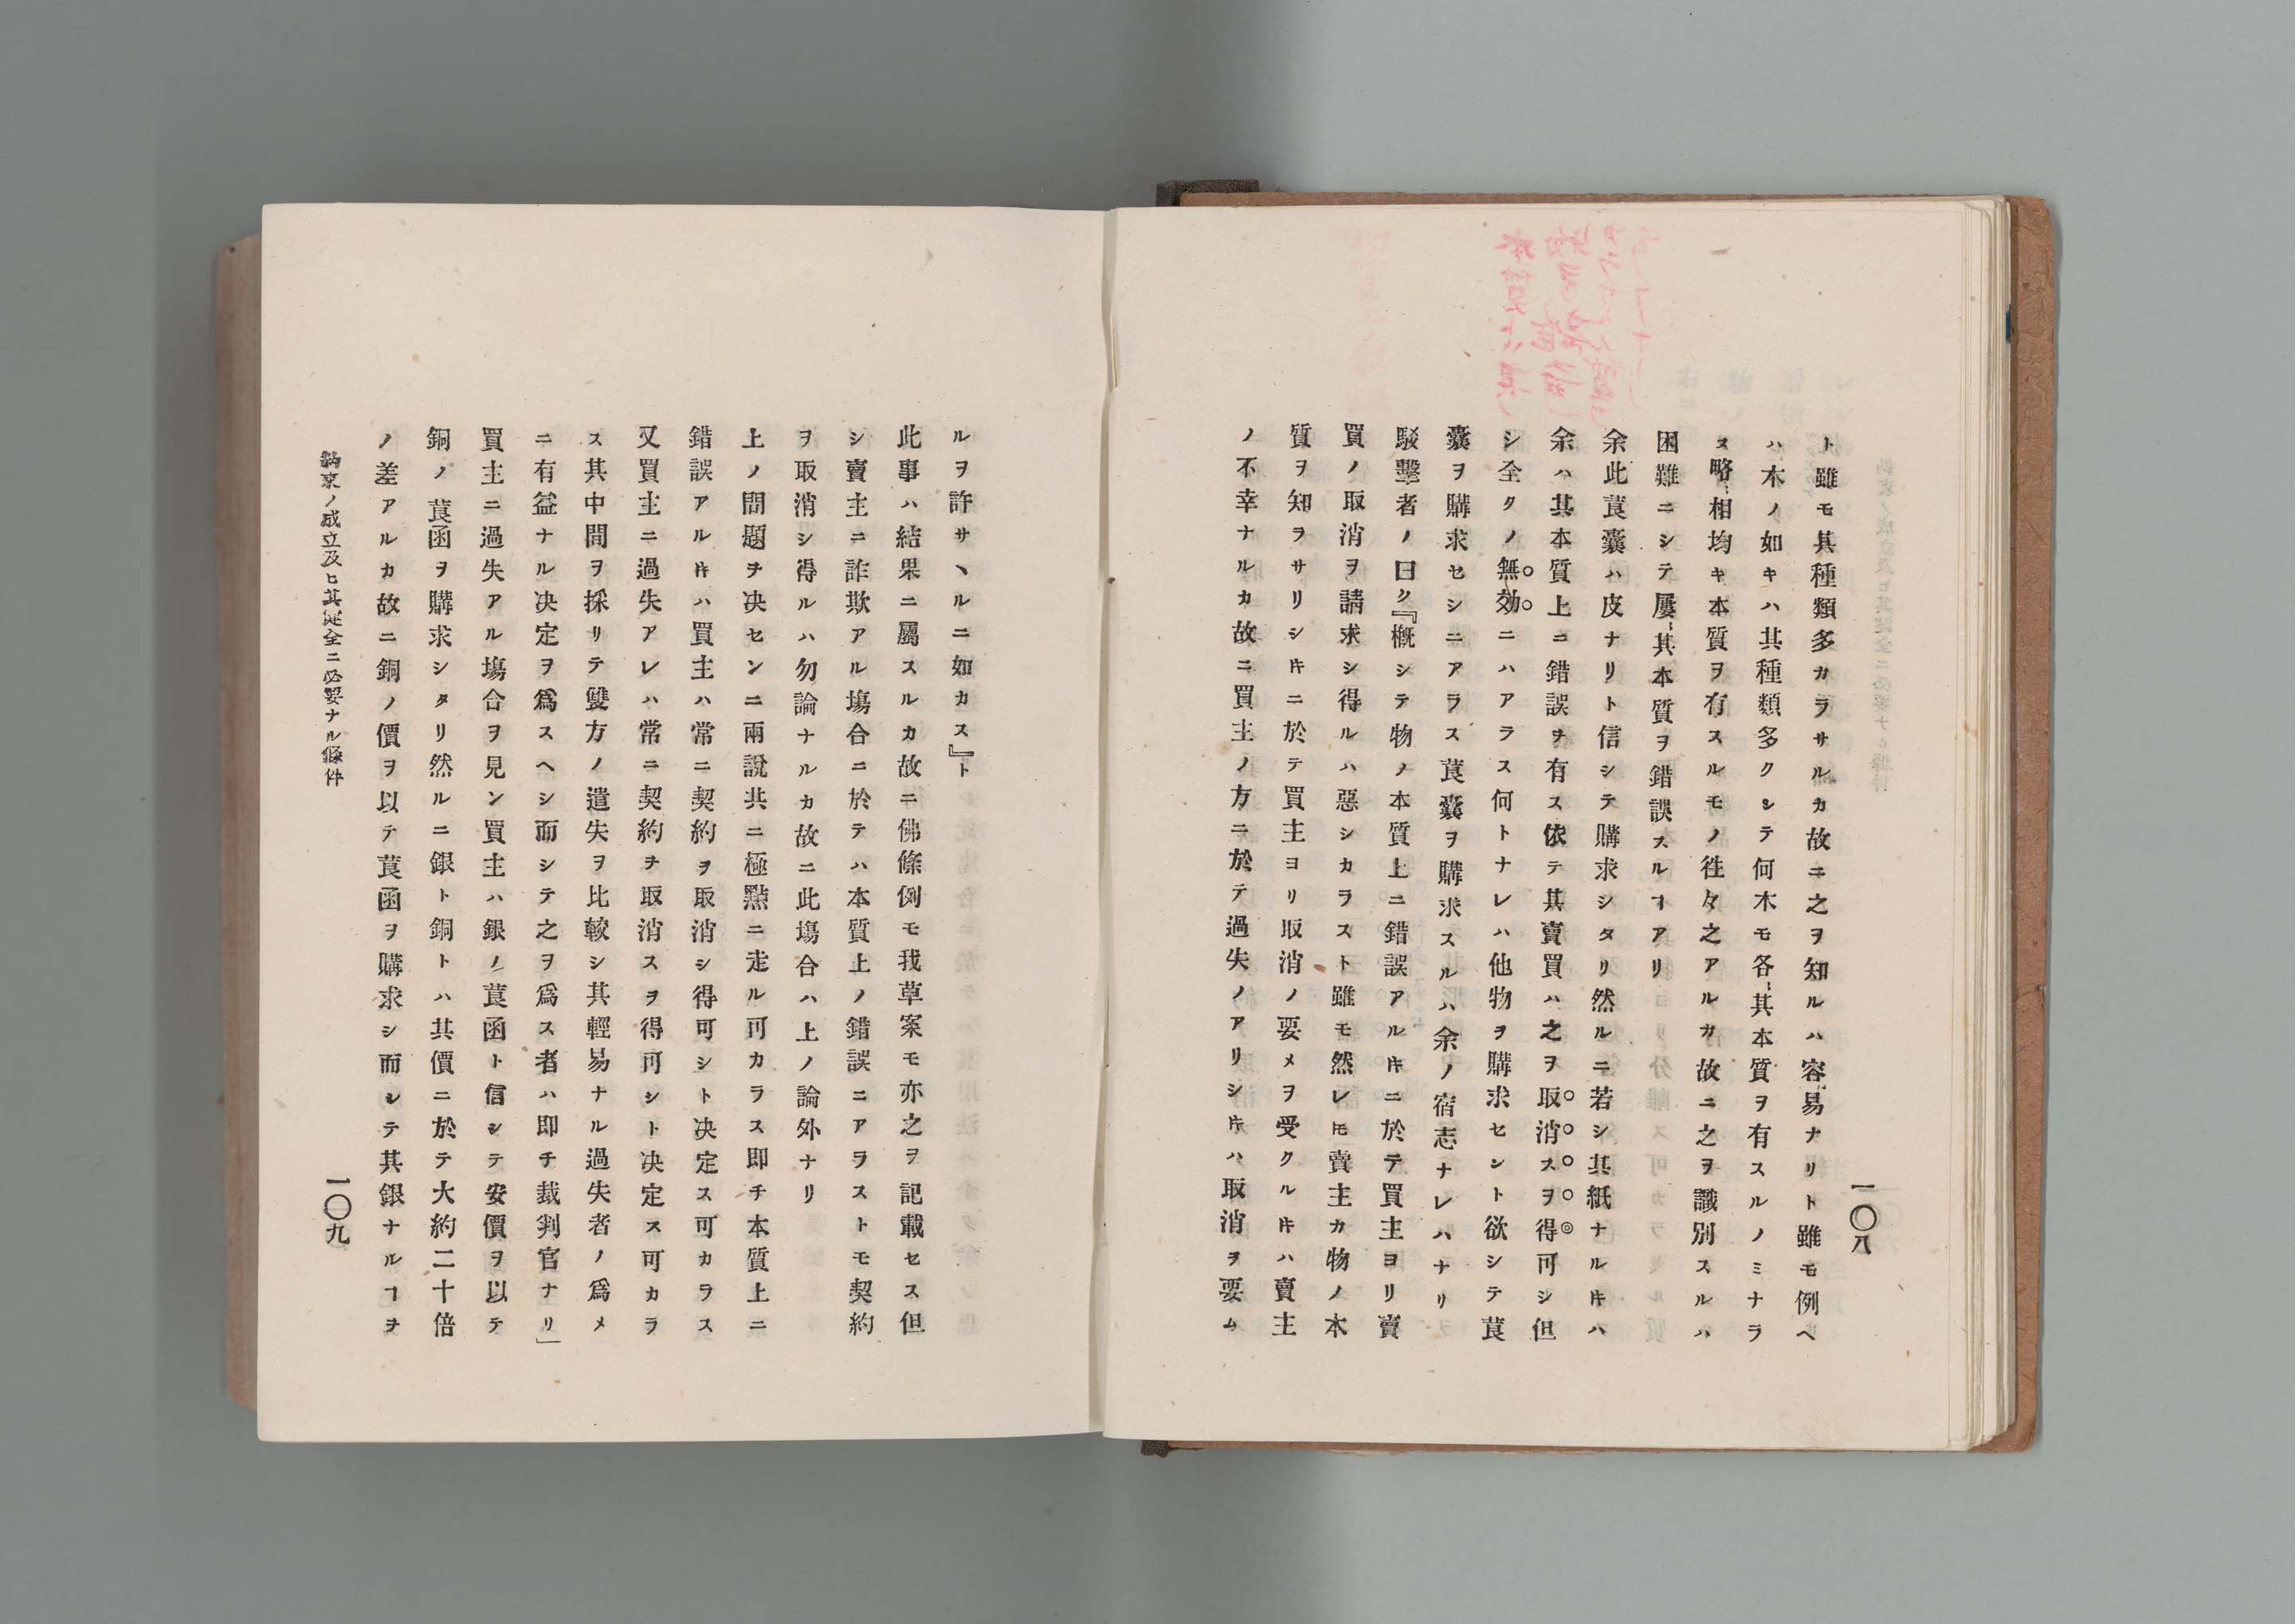 一〇八
ト雖モ其種類多カラサルカ故ニ之ヲ知ルハ容易ナリト雖モ例ヘ
ハ木ノ如キハ其種類多クシテ何木モ各〻其本質ヲ有スルノミナラ
ス略〻相均キ本質ヲ有スルモノ徃々之アルカ故ニ之ヲ識別スルハ
困難ニシテ屢〻其本質ヲ錯誤スルヿアリ
余此莨囊ハ皮ナリト信シテ購求シタリ然ルニ若シ其紙ナルキハ
余ハ其本質上ニ錯誤ヲ有ス依テ其賣買ハ之ヲ取消スヲ得可シ但
シ全クノ無効ニハアラス何トナレハ他物ヲ購求セント欲シテ莨
囊ヲ購求セシニアラス莨囊ヲ購求スルハ余ノ宿志ナレハナリ
駁擊者ノ曰ク『槪シテ物ノ本質上ニ錯誤アルキニ於テ買主ヨリ賣
買ノ取消ヲ請求シ得ルハ惡シカラスト雖モ然レ𪜈賣主カ物ノ本
質ヲ知ラサリシキニ於テ買主ヨリ取消ノ要メヲ受クルキハ賣主
ノ不幸ナルカ故ニ買主ノ方ニ於テ過失ノアリシキハ取消ヲ要ム
ルヲ許サヽルニ如カス』ト
此事ハ結果ニ屬スルカ故ニ佛條例モ我草案モ亦之ヲ記載セス但
シ賣主ニ詐欺アル塲合ニ於テハ本質上ノ錯誤ニアラストモ契約
ヲ取消シ得ルハ勿論ナルカ故ニ此塲合ハ上ノ論外ナリ
上ノ問題ヲ决センニ兩說共ニ極點ニ走ル可カラス即チ本質上ニ
錯誤アルキハ買主ハ常ニ契約ヲ取消シ得可シト决定ス可カラス
又買主ニ過失アレハ常ニ契約ヲ取消スヲ得可シト决定ス可カラ
ス其中間ヲ採リテ雙方ノ遣失ヲ比較シ其輕易ナル過失者ノ爲メ
ニ有益ナル决定ヲ爲スヘシ而シテ之ヲ爲ス者ハ即チ裁判官ナリ」
買主ニ過失アル塲合ヲ見ン買主ハ銀ノ莨函ト信シテ安價ヲ以テ
銅ノ莨函ヲ購求シタリ然ルニ銀ト銅トハ其價ニ於テ大約二十倍
ノ差アルカ故ニ銅ノ價ヲ以テ莨函ヲ購求シ而シテ其銀ナルヿヲ
約束ノ成立及ヒ其健全ニ必要ナル條件
一〇九